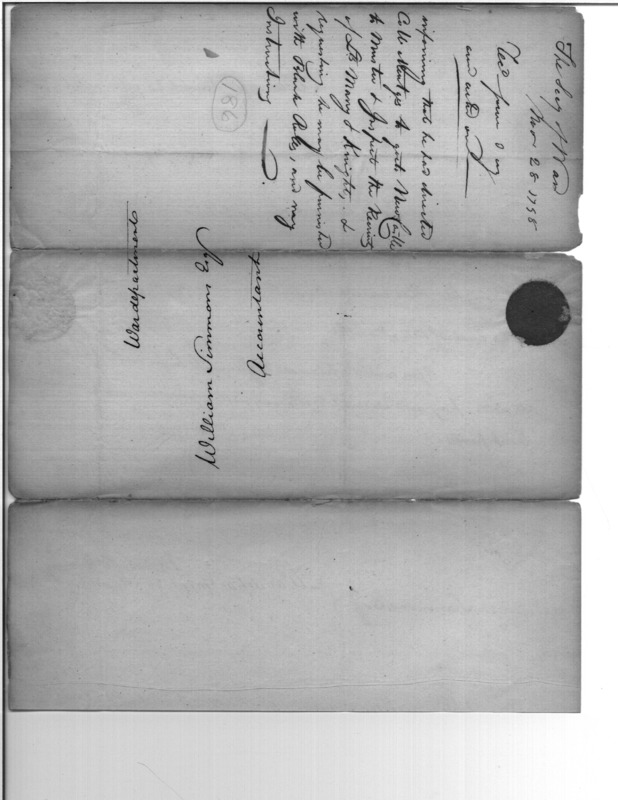 The Secy of War
Nov 28 1798
Recd same day
and acted on
informing that he had directed
Colo Mentges to go to New Castle
to Muster & Inspect the Recruits
of Lts Many & Knight, &
requesting he may be furnished
with Blank Rolls, and my
Instructions
186
William Simmons Esq
Accountant
War department